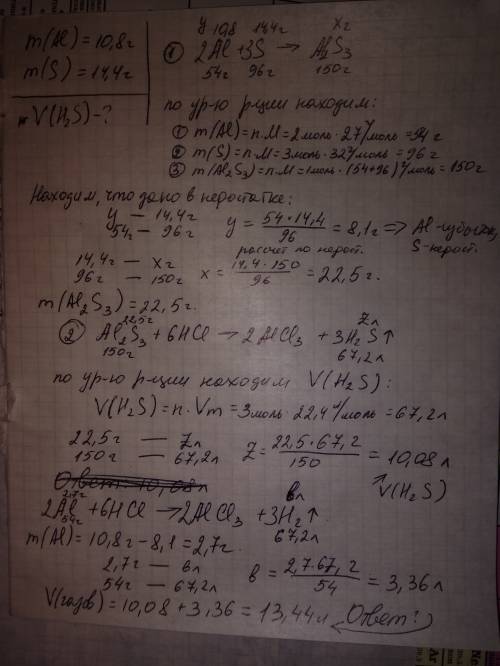 m(Al)=10,8г
m(S)=14,4г
V(H₂S)-?
у 10,8 14,4г хг
① 2Al+3S → Al₂S₃
54г 96г 150г
по ур-ю р-ции находим:
① m(Al)=n·M=2моль·27г/моль=94г
② m(S)=n·M=3моль·32г/моль=96г
③ m(Al₂S₃)=n·M=1моль·(54+96)г/моль=150г
Находим, что дано в недостатке:
у — 14,4г
54г — 96г
у = 54*14,4/96 = 8,1г => Al-избыток,
S-недост.
рассчёт по недост.
14,4г — хг
96г — 150г
х = 14,4·150/96 = 22,5г.
m(Al₂S₃)=22,5г.
22,5г Zл
② Al₂S₃+6HCl → 2AlCl₃ +3H₂S↑
150г 67,2л
по ур-ю р-ции находим V(H₂S):
V(H₂S)=n·Vm=3моль·22,4л/моль=67,2л
22,5г — Zл
150г — 67,2л
Z = 22,5·67,2/150 = 10,08л
V(H₂S)
Ответ 10,08л
2,7г вл
2Al +6HCl → 2AlCl₃ +3H₂↑
54г 67,2л
m(Al)=10,8г-8,1=2,7г.
2,7г — вл
54г — 67,2л
в = 2,7·67,2/54 = 3,36л
V(газов)=10,08+3,36=13,44л Ответ: